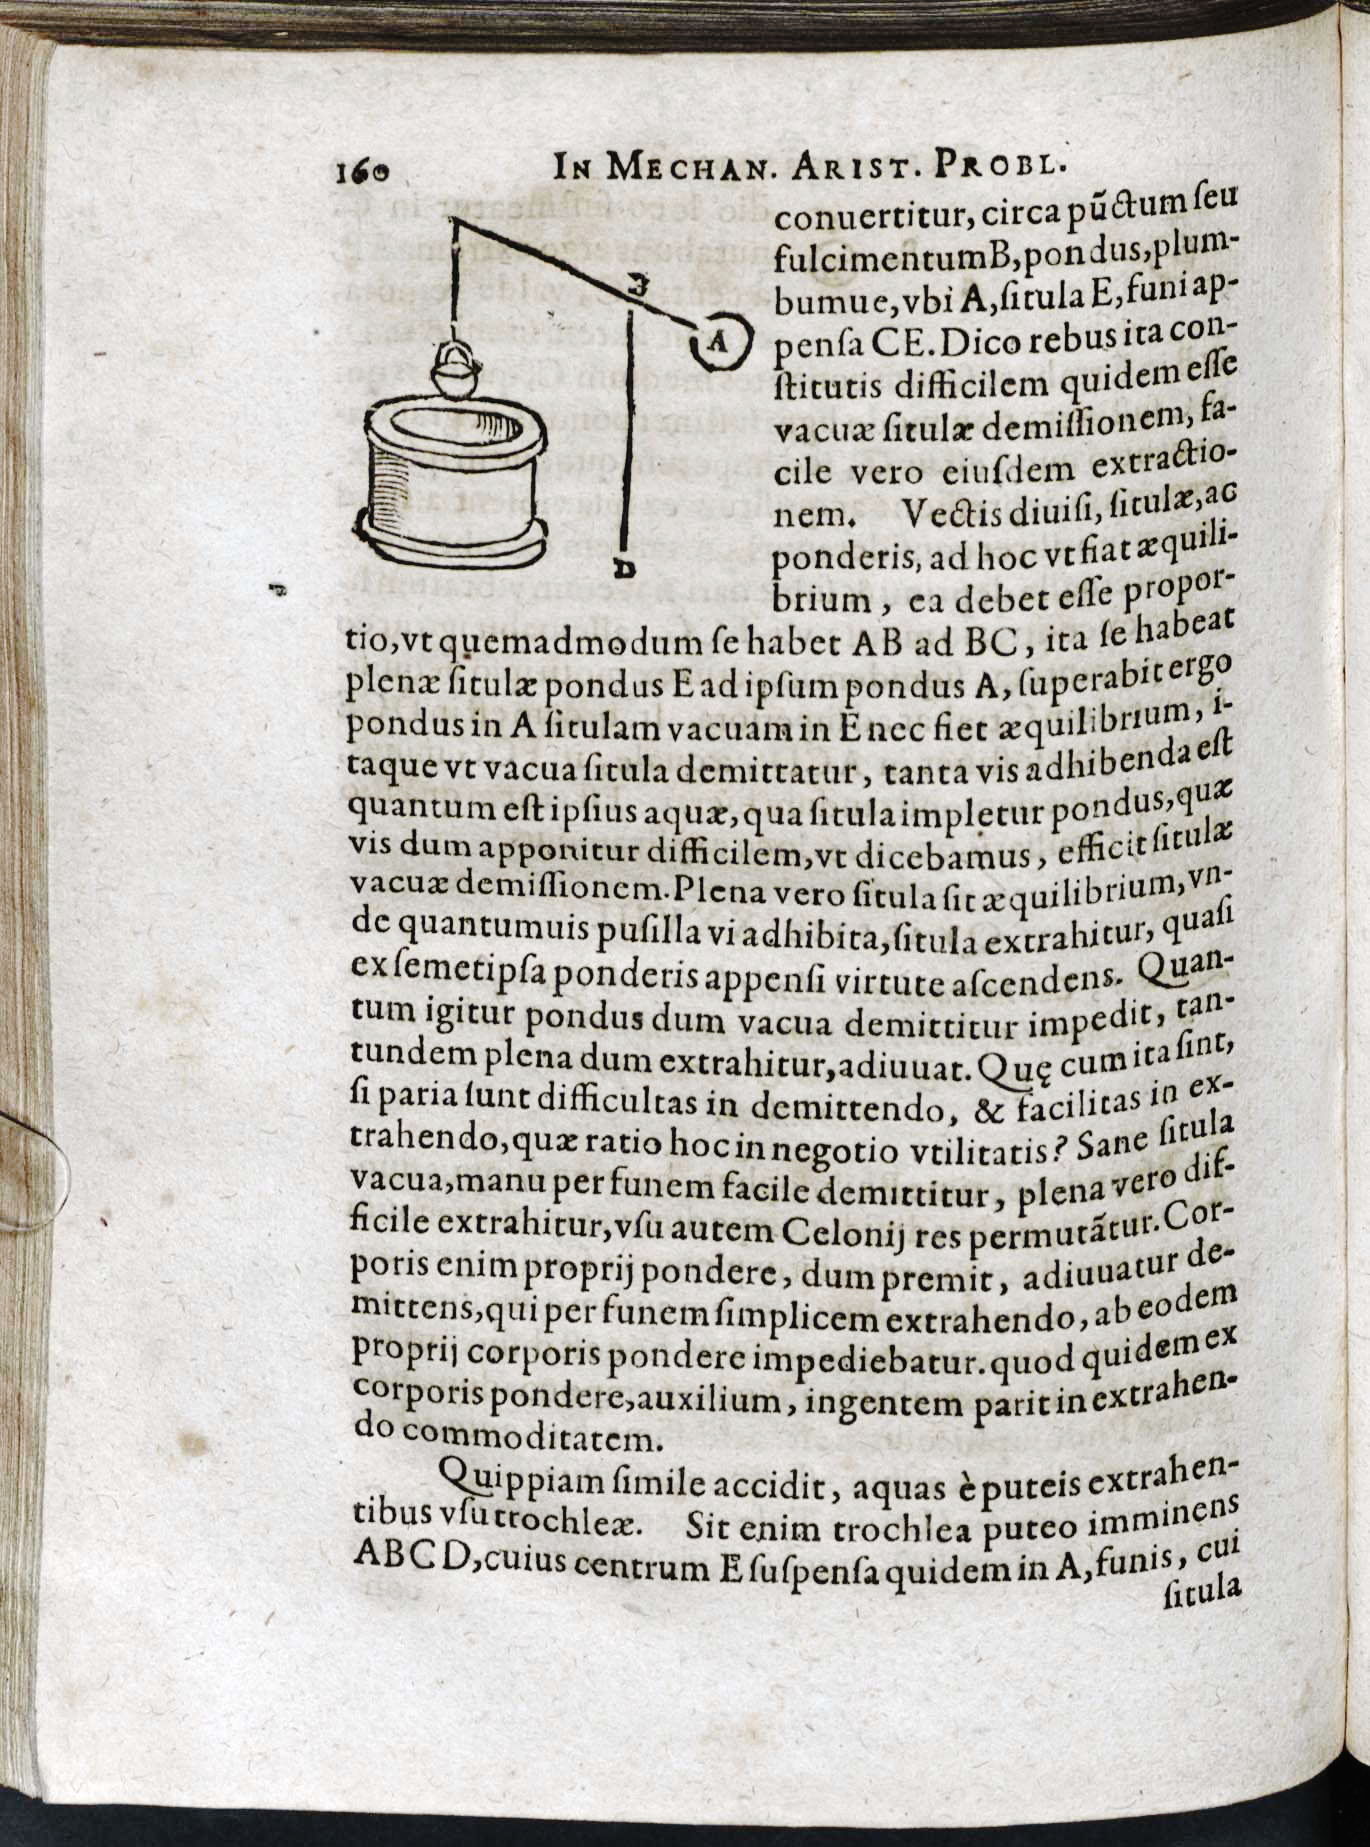 160 IN MECHAN. ARIST. PROBL.
conuertitur, circa pũctum ſeu
fulcimentum B, pondus, plum-
bumue, vbi A, ſitula E, funi ap-
penſa CE. Dico rebus ita con-
ſtitutis difficilem quidem eſſe
vacuæ ſitulæ demiſſionem, fa-
cile vero eiuſdem extractio-
nem. Vectis diuiſi, ſitulæ, ac
ponderis, ad hoc vt fiat æquili-
brium, ea debet eſſe propor-
tio, vt quemadmodum ſe habet AB ad BC, ita ſe habeat
plenæ ſitulæ pondus E ad ipſum pondus A, ſuperabit ergo
pondus in A ſitulam vacuam in E nec fiet æquilibrium, i-
taque vt vacua ſitula demittatur, tanta vis adhibenda eſt
quantum eſt ipſius aquæ, qua ſitula impletur pondus, quæ
vis dum apponitur difficilem, vt dicebamus, efficit ſitulæ
vacuæ demiſſionem. Plena vero ſitula fit æquilibrium, vn-
de quantumuis puſilla vi adhibita, ſitula extrahitur, quaſi
ex ſemetipſa ponderis appenſi virtute aſcendens. Quan-
tum igitur pondus dum vacua demittitur impedit, tan-
tundem plena dum extrahitur, adiuuat. Quę cum ita ſint,
ſi paria ſunt difficultas in demittendo, & facilitas in ex-
trahendo, quæ ratio hoc in negotio vtilitatis? Sane ſitula
vacua, manu per funem facile demittitur, plena vero dif-
ficile extrahitur, vſu autem Celonij res permutãtur. Cor-
poris enim proprij pondere, dum premit, adiuuatur de-
mittens, qui per funem ſimplicem extrahendo, ab eodem
proprij corporis pondere impediebatur. quod quidem ex
corporis pondere, auxilium, ingentem parit in extrahen-
do commoditatem.
Quippiam ſimile accidit, aquas è puteis extrahen-
tibus vſu trochleæ. Sit enim trochlea puteo imminens
ABCD, cuius centrum E ſuſpenſa quidem in A, funis, cui
ſitula
B
A
D